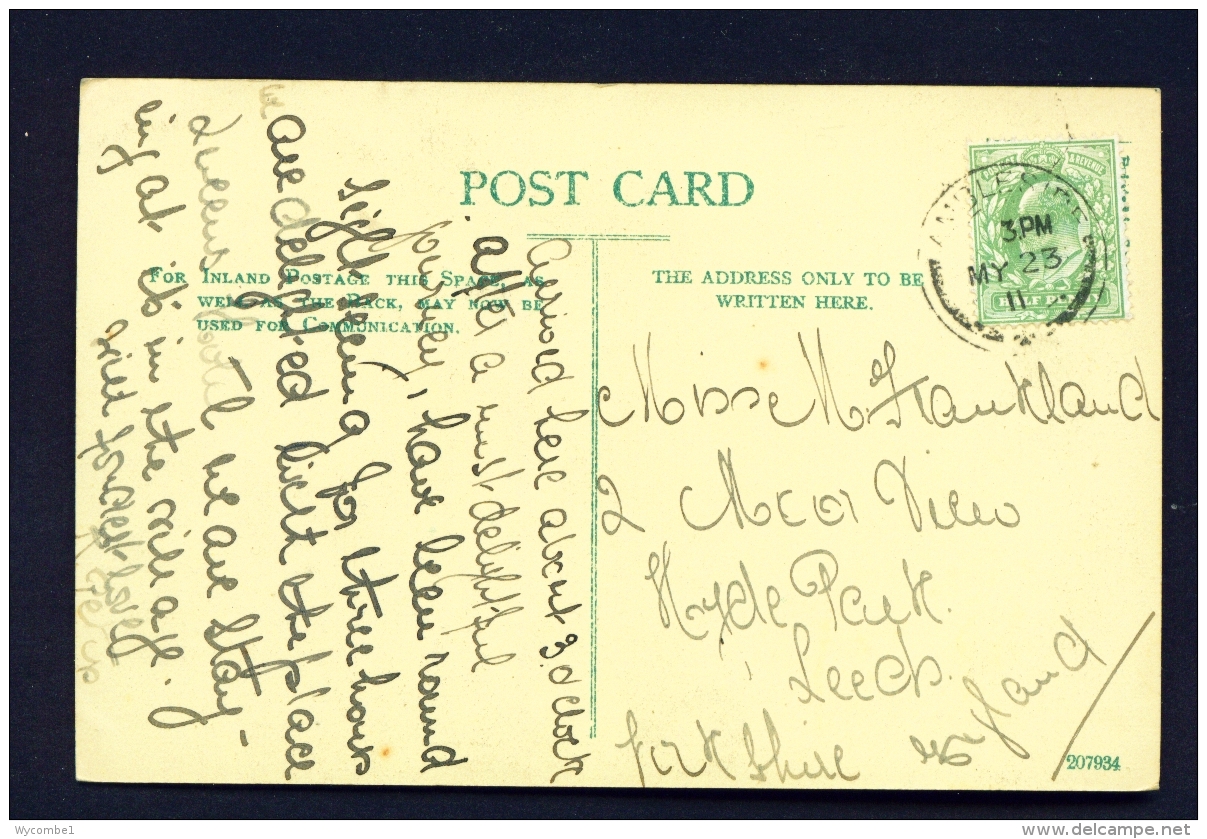 POST CARD
FOR INLAND POSTAGE THIS SPACE, AS
WELL AS THE BACK, MAY NOW BE
USED FOR COMMUNICATION.
THE ADDRESS ONLY TO BE
WRITTEN HERE.
AMBLESIDE
3.PM
MY 23
11
HALF PENNY
Arrived here about 3.oclock
after a most delightful
journey, have been round
sight seeing for three hours
are delighted with the place
We
Queens Hotel we are stay-
ing at it is in the village.
will forward
Miss M Frankland
2 Moor View
Hyde Park.
Leeds.
Yorkshire England
207934
Wycombe1
www.delcampe.net